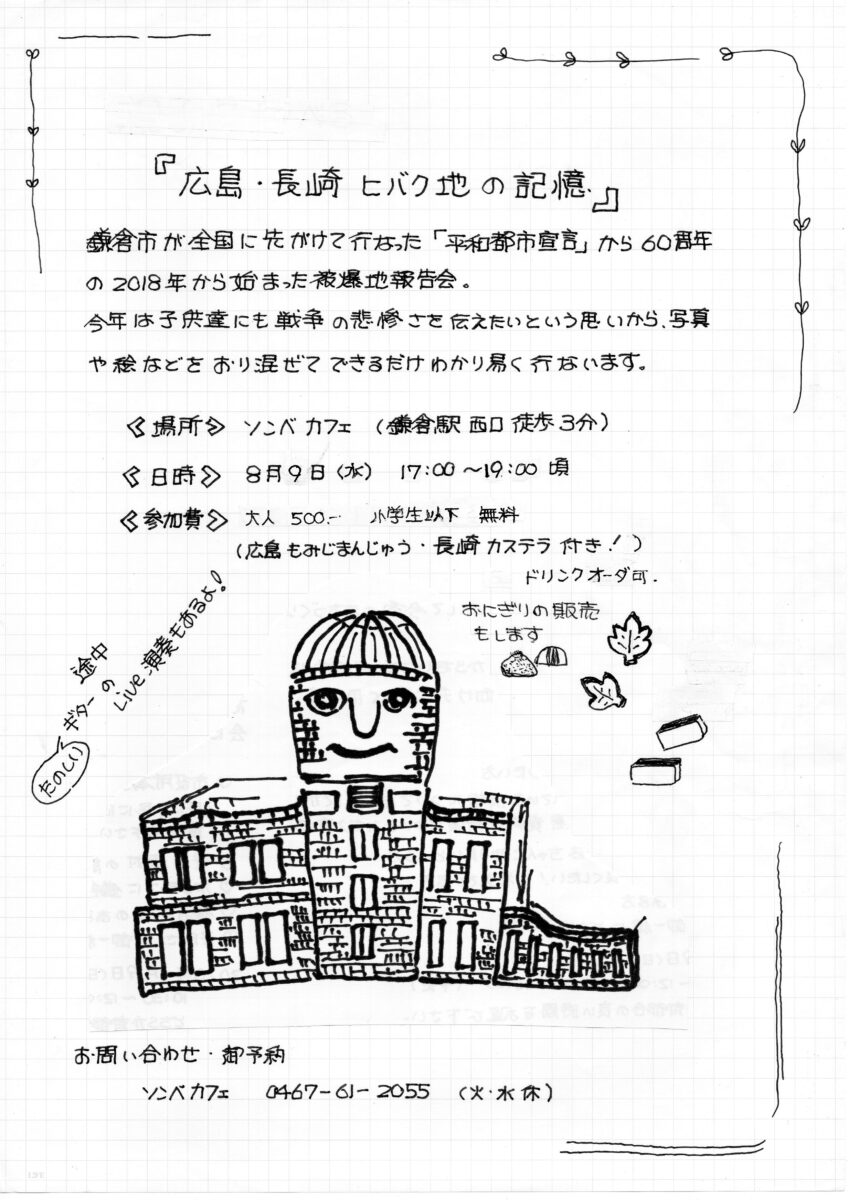 『広島・長崎 ヒバク地の記憶』
鎌倉市が全国に先がけて行なった「平和都市宣言」から60周年
の2018年から始まった被爆地報告会。
今年は子供達にも戦争の悲惨さを伝えたいという思いから、写真
や絵などをおり混ぜてできるだけわかり易く行ないます。
《場所》 ソンベカフェ (鎌倉駅西口徒歩3分)
《日時》 8月9日(水) 17:00〜19:00頃
《参加費》 大人 500.- 小学生以下 無料
(広島もみじまんじゅう・長崎カステラ付き!)
ドリンクオーダ可.
おにぎりの販売
もします
途中
ギターの
Live演奏もあるよ!
お問い合わせ・御予約
ソンベカフェ 0467-61-2055 (火・水休)